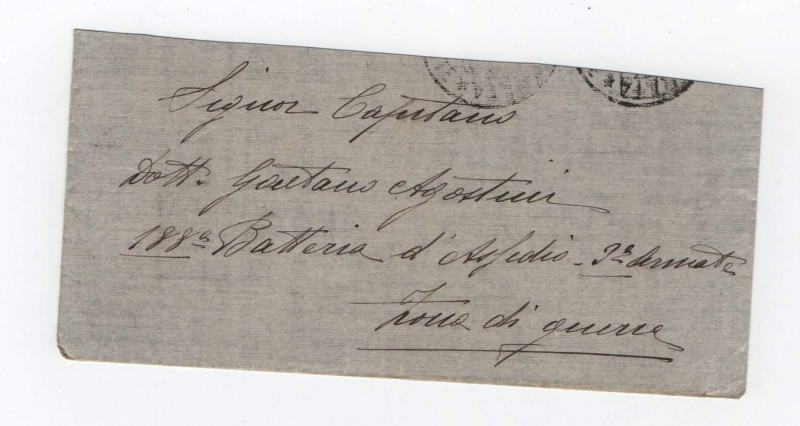 Signor Capitano
Dott. Gaetano Agostini
188a Batteria d'Assedio - 3a Armata
Zona di guerra